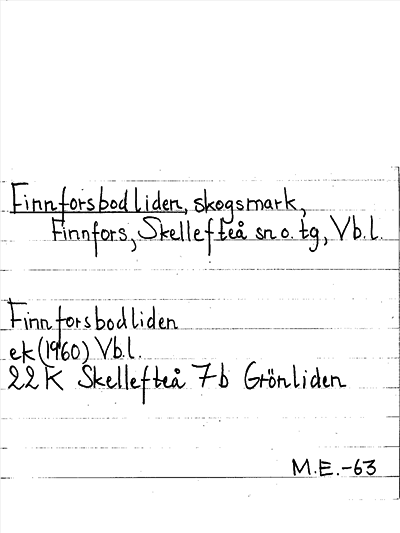 Finnforsbodliden, skogsmark,
Finnfors, Skellefteå sn o. tg, Vb.l.
Finnforsbodliden
ek (1960) Vb.l.
22K Skellefteå 7b Grönliden
M.E.-63